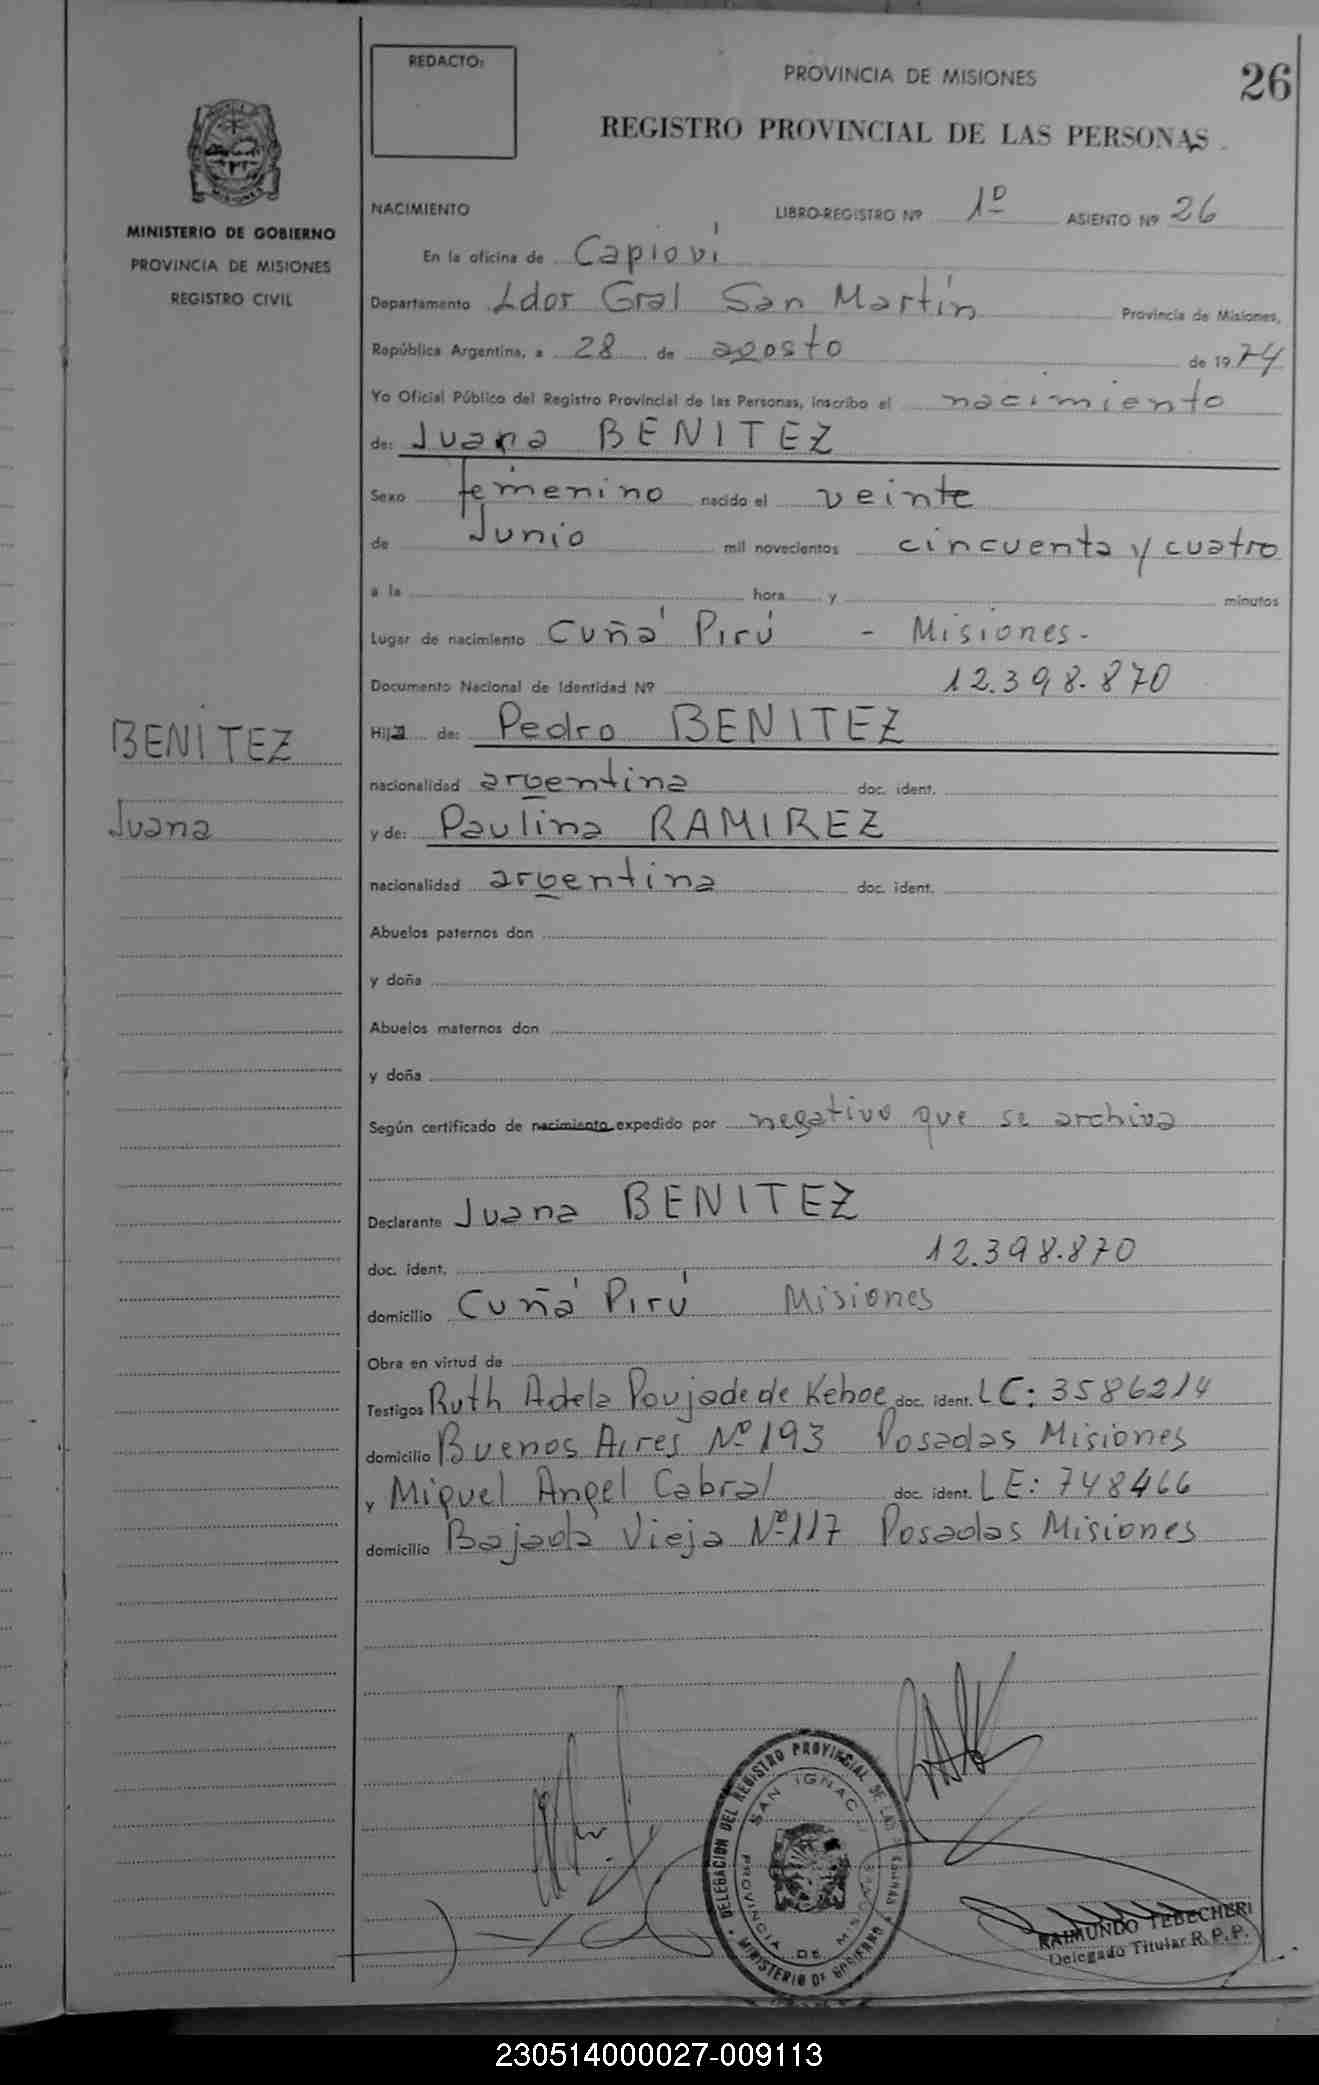 REDACTO:
PROVINCIA DE MISIONES
26
REGISTRO PROVINCIAL DE LAS PERSONAS
MINISTERIO DE GOBIERNO
PROVINCIA DE MISIONES
REGISTRO CIVIL
NACIMIENTO
LIBRO-REGISTRO Nº 1º ASIENTO Nº 26
En la oficina de Capioví
Departamento Ldor Gral San Martín Provincia de Misiones,
República Argentina, a 28 de agosto de 1974
Yo Oficial Público del Registro Provincial de las Personas, inscribo el nacimiento
de: Juana BENITEZ
Sexo femenino nacido el veinte
de Junio mil novecientos cincuenta y cuatro
a la hora y minutos
Lugar de nacimiento Cuñá Pirú - Misiones-
Documento Nacional de Identidad Nº 12.398.870
BENITEZ
Juana
Hija de: Pedro BENITEZ
nacionalidad argentina doc. ident.
y de: Paulina RAMIREZ
nacionalidad argentina doc. ident.
Abuelos paternos don
y doña
Abuelos maternos don
y doña
Según certificado de nacimiento expedido por negativo que se archiva
Declarante Juana BENITEZ
doc. ident. 12.398.870
domicilio Cuñá Pirú Misiones
Obra en virtud de
Testigos Ruth Adela Poujade de Kehoe doc. ident. LC: 3586214
domicilio Buenos Aires Nº 193 Posadas Misiones
y Miguel Angel Cabral doc. ident. LE: 748466
domicilio Bajada Vieja Nº 117 Posadas Misiones
DELEGACION DEL REGISTRO PROVINCIAL DE LAS PERSONAS
SAN IGNACIO
PROVINCIA DE MISIONES
MINISTERIO DE GOBIERNO
RAIMUNDO TEBECHERI
Delegado Titular R. P. P.
230514000027-009113